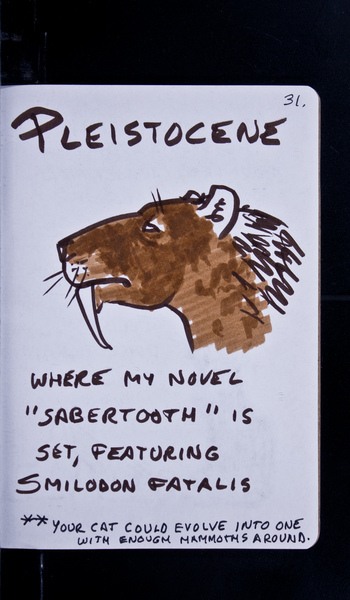 31.
PLEISTOCENE
WHERE MY NOVEL
"SABERTOOTH" IS
SET, FEATURING
SMILODON FATALIS
** YOUR CAT COULD EVOLVE INTO ONE
WITH ENOUGH MAMMOTHS AROUND.